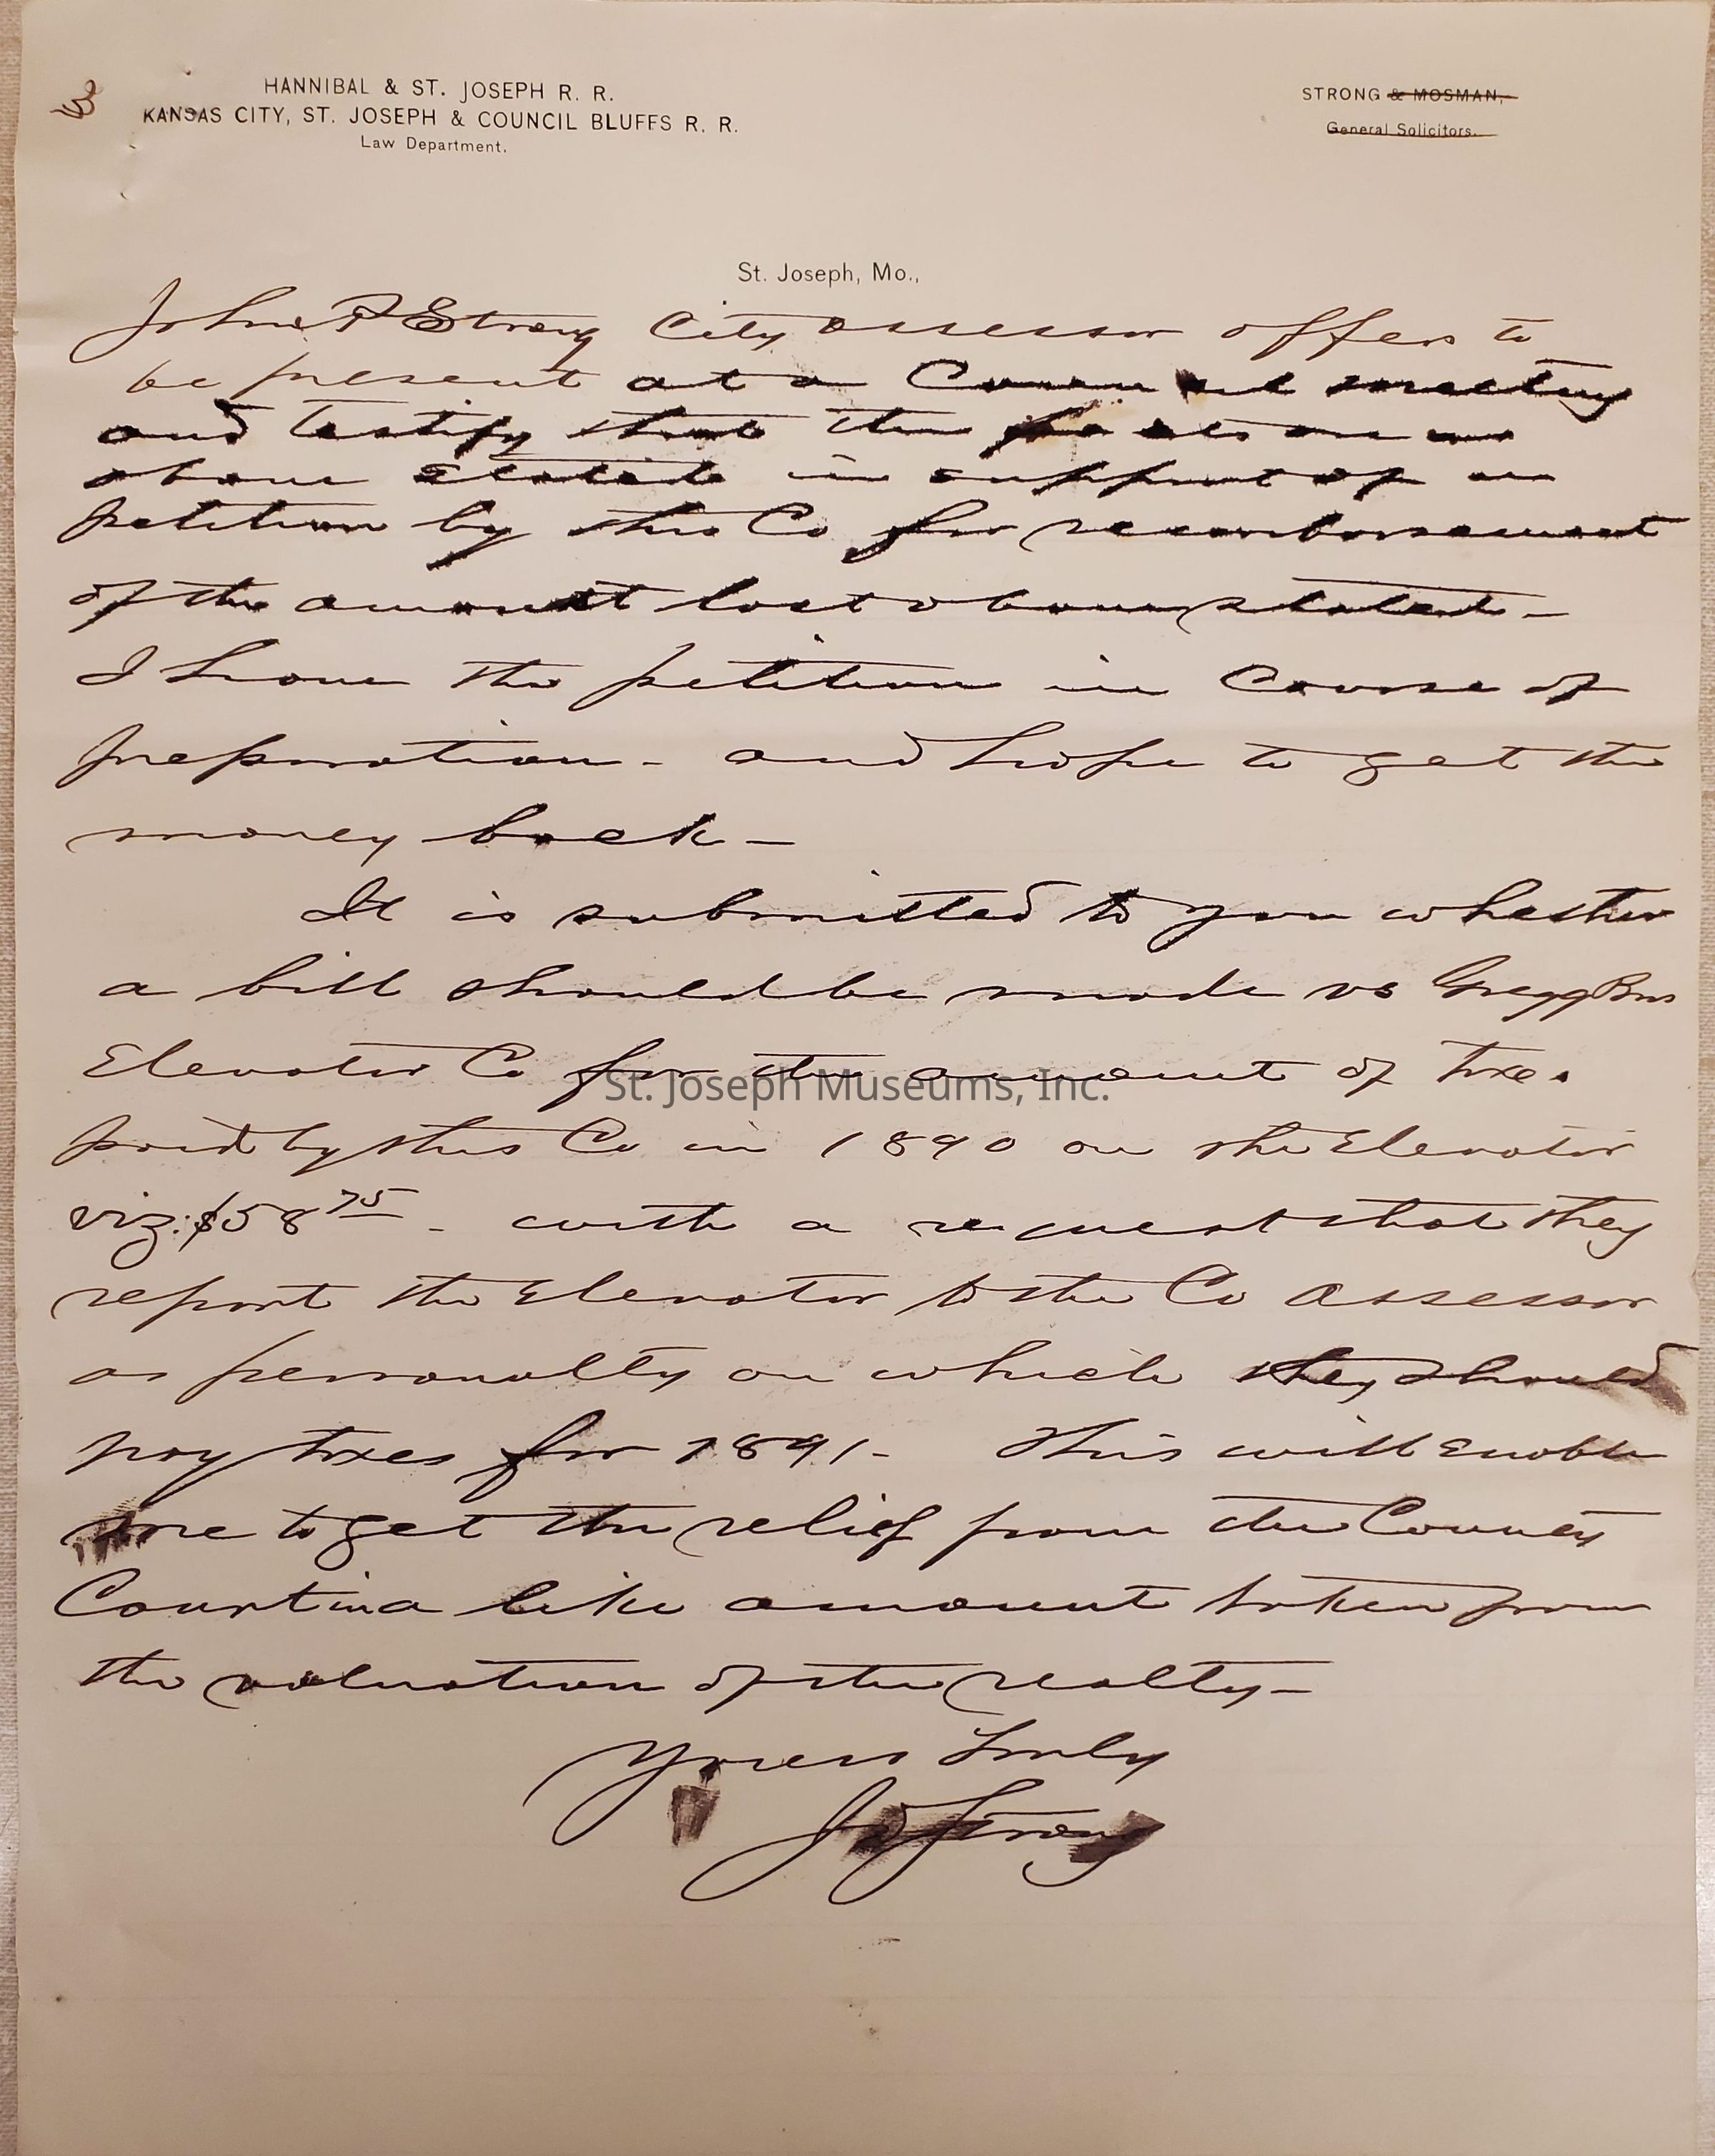 3
HANNIBAL & ST. JOSEPH R. R.
KANSAS CITY, ST. JOSEPH & COUNCIL BLUFFS R. R.
Law Department.
STRONG & MOSMAN,
General Solicitors.
St. Joseph, Mo.,
John P Strong City assessor offers to
be present at a Council meeting
and testify that the facts are as
above stated in support of a
petition by this Co for reimbursement
of the amount lost above stated -
I have the petition in Course of
preparation - and hope to get the
money back -
It is submitted to you whether
a bill should be made vs Gregg Bros
Elevator Co for the amount of taxes
paid by this Co in 1890 on the Elevator
viz: $58 75 - with a request that they
report the Elevator to the Co assessor
as personalty on which they should
pay taxes for 1891 - This will Enable
me to get the relief from the County
Court in a like amount taken from
the valuation of the realty -
Yours truly
J Strong
St. Joseph Museums, Inc.